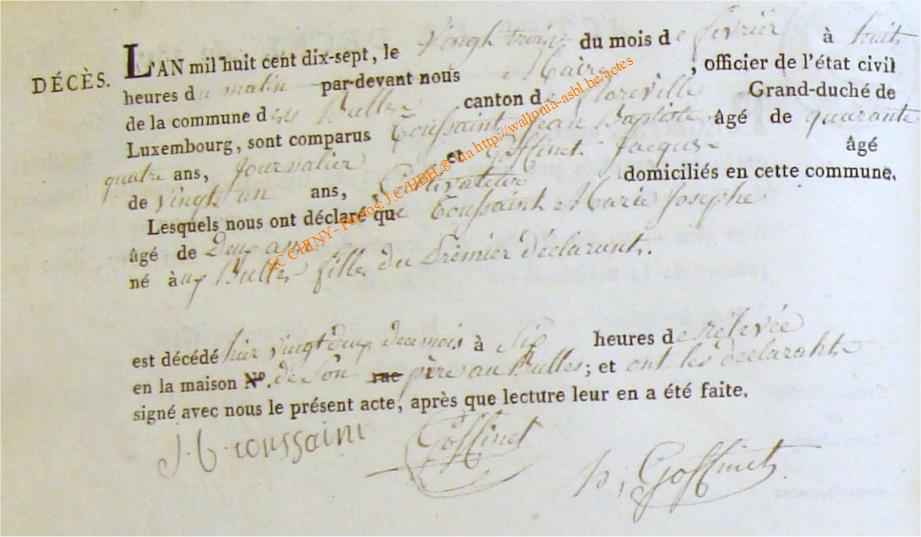 DÉCÈS. L'AN mil huit cent dix-sept, le Vingt trois du mois de février à huit
heures du matin par-devant nous Maire, officier de l'état civil
de la commune des Bulles canton de Floreville Grand-duché de
Luxembourg, sont comparus Toussaint Jean Baptiste âgé de quarante
quatre ans, Journalier et Goffinet Jacques âgé
de vingt un ans, Cultivateur domiciliés en cette commune.
Lesquels nous ont déclaré que Toussaint Marie Josephe
âgé de Deux ans
né à aux Bulles fille du Premier déclarant.
est décédé hier vingt deux de ce mois à Six heures de rélevée
en la maison N.º de Son rue père au Bulles; et ont les déclarants
signé avec nous le présent acte, après que lecture leur en a été faite.
J. B. toussaint Goffinet
h, Goffinet
AC CHINY - Photos J.C. HBH @ via http://wallonia-asbl.be/actes